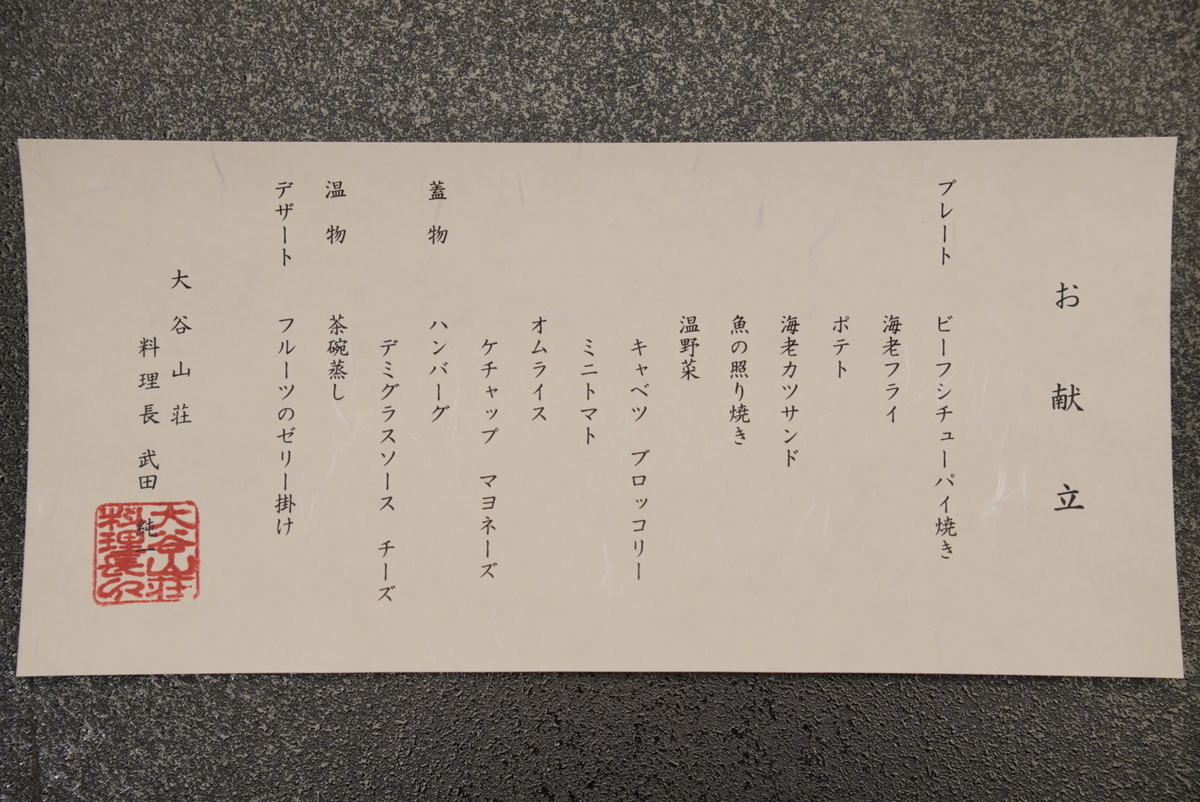 お献立
プレート　ビーフシチューパイ焼き
海老フライ
ポテト
海老カツサンド
魚の照り焼き
温野菜
キャベツ　ブロッコリー
ミニトマト
オムライス
ケチャップ　マヨネーズ
蓋物　ハンバーグ
デミグラスソース　チーズ
温物　茶碗蒸し
デザート　フルーツのゼリー掛け
大谷山荘
料理長　武田　純一
大谷山荘
料理長印